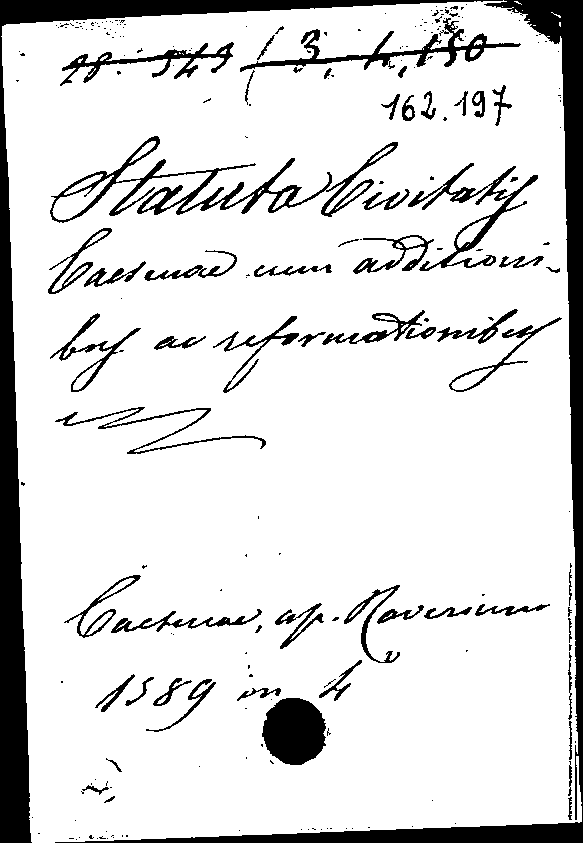 28. 543 ( 3, 4, 150
162.197
Statuta Civitatis
Caesenae cum additioni-
bus ac reformationibus
Caesenae, ap. Raverium
1589 in 4°